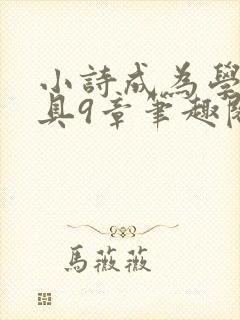 小詩成為學
具9章筆趣閱
馬薇薇